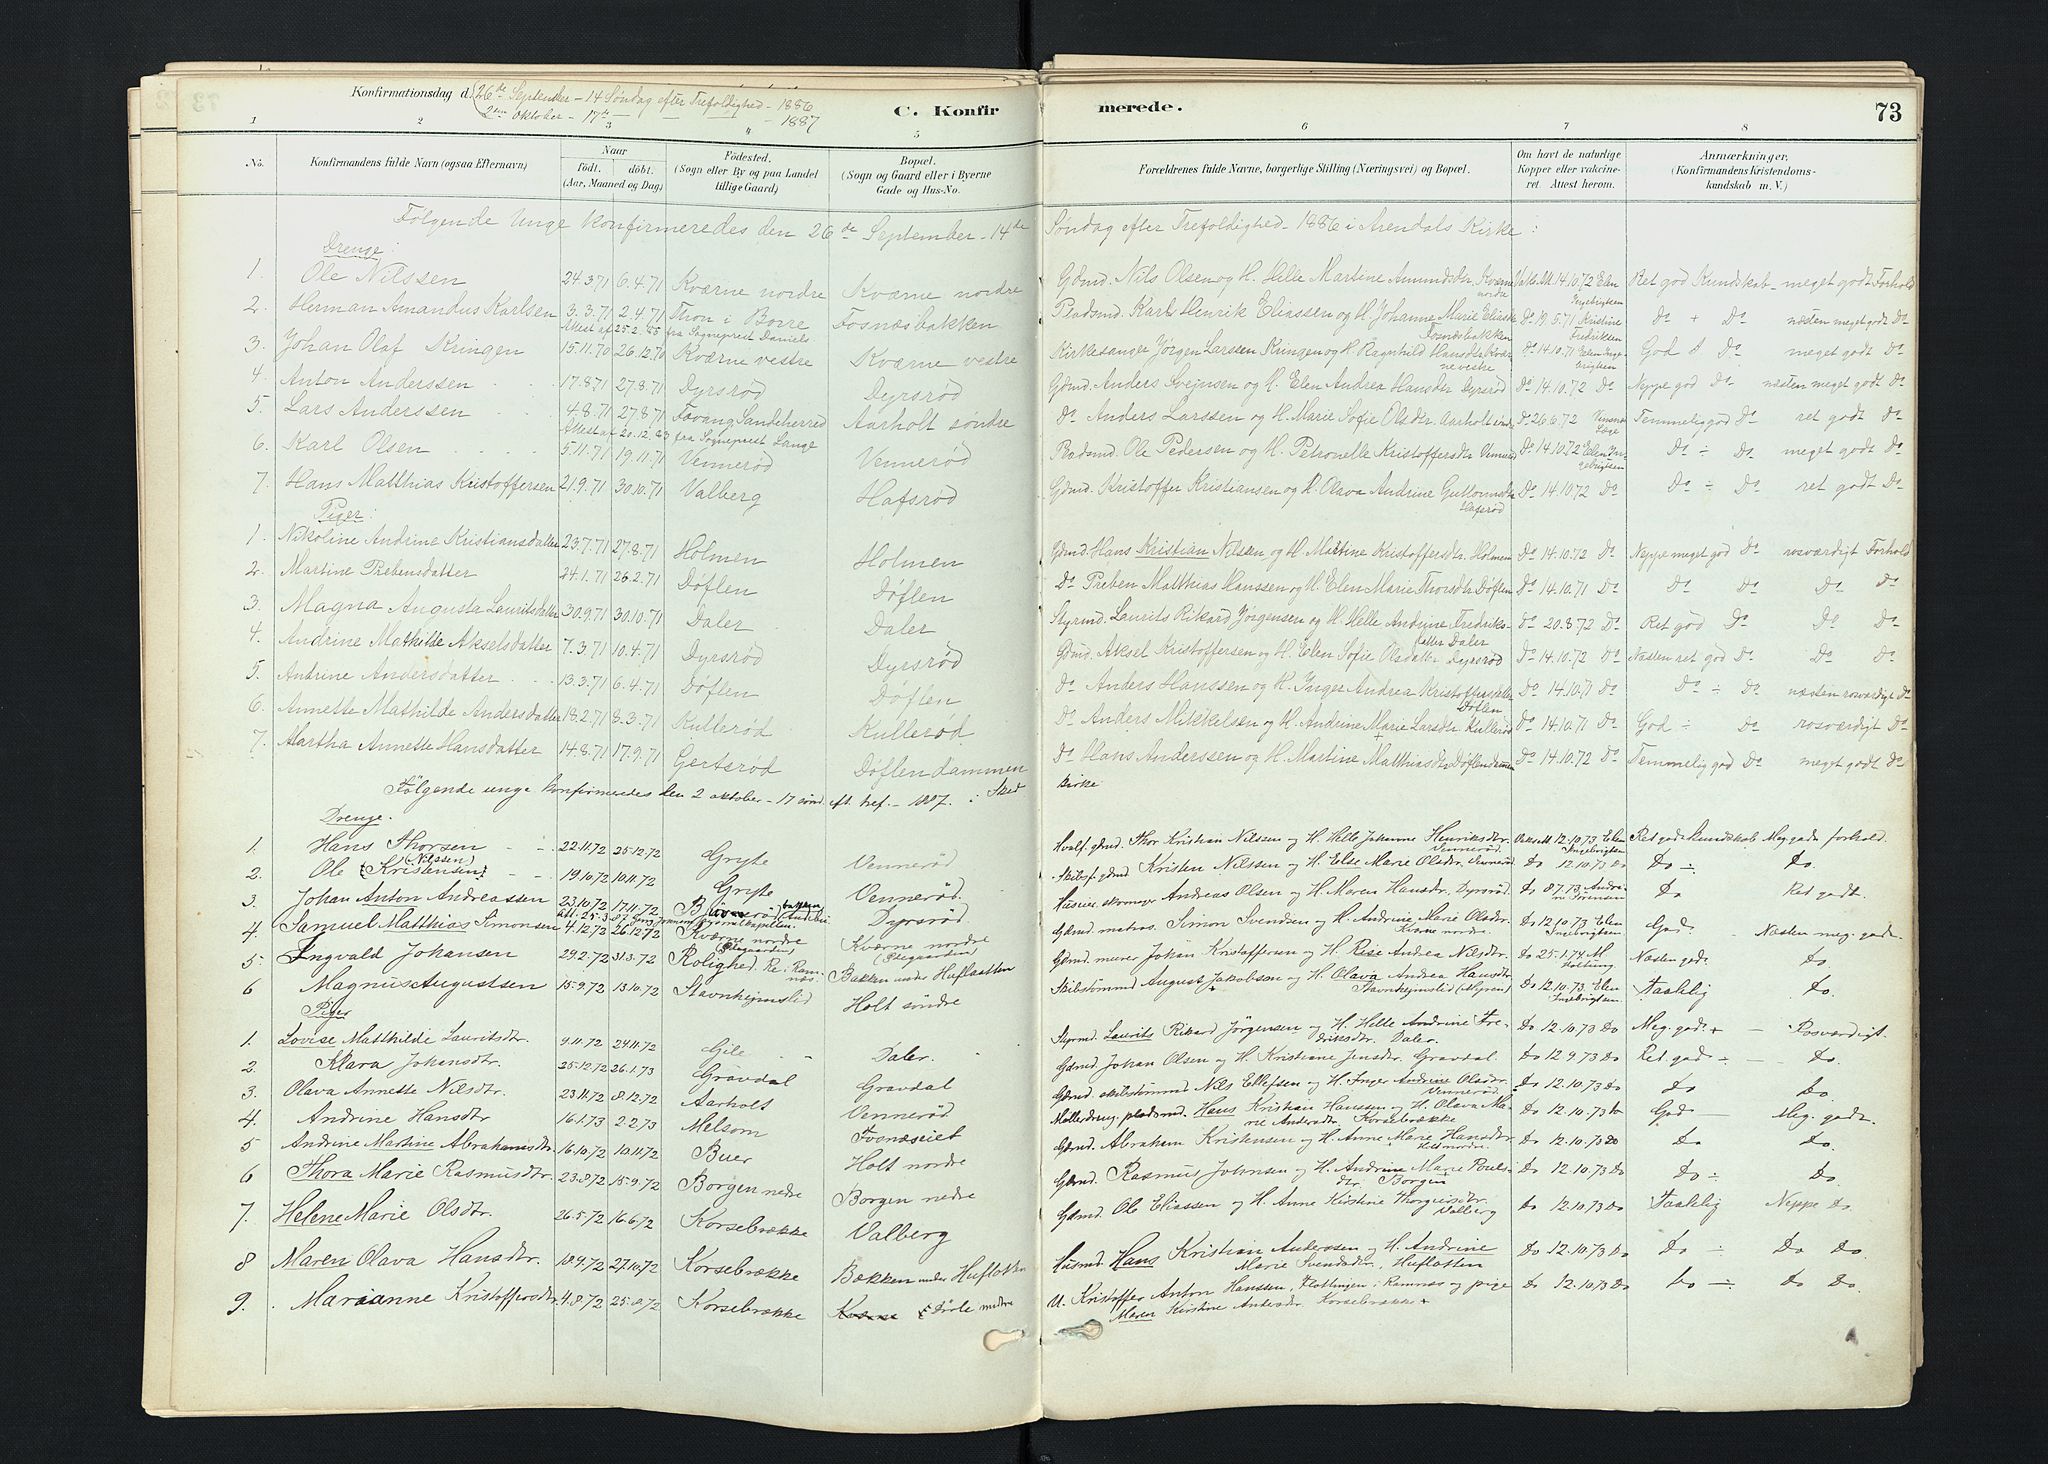 Konfirmationsdag d. 26de September - 14 Søndag efter Trefoldighed - 1886
2den Oktober - 17de - 1887
C. Konfirmerede. 73
1 2 3 4 5 6 7 8
No. Konfirmandens fulde Navn (ogsaa Efternavn) Naar født. døbt. (Aar, Maaned og Dag) Fødested. (Sogn eller By og paa Landet tillige Gaard) Bopæl. (Sogn og Gaard eller i Byerne Gade og Hus-No. Forældrenes fulde Navne, borgerlige Stilling (Næringsvei) og Bopæl. Om havt de naturlige Kopper eller vakcineret. Attest herom. Anmærkninger, (Konfirmandens Kristendomskundskab m. V.)
Følgende Unge konfirmeredes den 26de September - 14de Søndag efter Trefoldighed - 1886 i Arendals Kirke:
Drenge:
1. Ole Nilssen 24.3.71 6.4.71 Kværne nordre Kværne nordre Gdmd. Nils Olsen og H. Helle Martine Amundsdtr. Kværne nordre Vak. At. 14.10.72 Elen Ingebrigtsen Ret god Kundskab - meget godt Forhold
2. Herman Amandus Karlsen 3.3.71 2.4.71 Thon i Borre Fosnæsbakken Pladsmd. Karl Henrik Eliassen og H. Johanne Marie Eliasdtr Fosnæsbakken Do 19.5.71 Kristine Fredriksen Do + Do næsten meget godt Do
Attest af 25.2.85 fra Sogneprest Daniels
3. Johan Olaf Kringen 15.11.70 26.12.70 Kværne vestre Kværne vestre Kirkesanger Jörgen Larssen Kringen og H. Ragnhild Hansdtr Kværne vestre Do 14.10.71 Elen Ingebrigtsen God Do meget godt Do
4. Anton Anderssen 17.8.71 27.8.71 Dyrsrød Dyrsrød Gdmd. Anders Svejnsen og H. Elen Andrea Hansdtr Dyrsrød Do 14.10.72 Do Neppe god Do næsten meget godt Do
5. Lars Anderssen 4.8.71 27.8.71 Fevang Sandeherred Aarholt søndre Do Anders Larssen og H. Marie Sofie Olsdtr. Aarholt søndre Do 26.6.72 Temmelig god Do ret godt Do
Attest af 20.12.83 fra Sogneprest Lange
6. Karl Olsen 5.11.71 19.11.71 Vennerød Vennerød Pladsmd. Ole Pedersen og H. Petronelle Kristoffersdtr Vennerød Do 14.10.72 Elen Ingebrigtsen Do ÷ Do meget godt Do
7. Hans Matthias Kristoffersen 21.9.71 30.10.71 Valberg Hafsrød Gdmd. Kristoffer Kristiansen og H. Olava Andrine Guttormsdtr Hafsrød Do 14.10.72 Do Do ÷ Do ret godt Do
Piger:
1. Nikoline Andrine Kristiansdatter 23.7.71 27.8.71 Holmen Holmen Gdmd. Hans Kristian Nilsen og H. Martine Kristoffersdtr. Holmen Do 14.10.72 Do Neppe meget god Do rosværdigt Forhold
2. Martine Prebensdatter 24.1.71 26.2.71 Døflen Døflen Do Preben Matthias Hanssen og H. Elen Marie Thorsdtr Døflen Do 14.10.71 Do Do Do Do Do
3. Magna Augusta Lauritsdatter 30.9.71 30.10.71 Daler Daler Styrmd. Laurits Rikard Jørgensen og H. Helle Andrine Fredriksdatter Daler Do 20.8.72 Do Ret god Do Do Do
4. Andrine Mathilde Akselsdatter 7.3.71 10.4.71 Dyrsrød Dyrsrød Gdmd. Aksel Kristoffersen og H. Elen Sofie Olsdatter Dyrsrød Do 14.10.72 Do Næsten ret god Do Do Do
5. Andrine Andersdatter 13.3.71 6.4.71 Døflen Døflen Do Anders Hanssen og H. Inger Andrea Kristoffersdatter Døflen Do 14.10.71 Do Do ÷ Do næsten rosværdigt Do
6. Annette Mathilde Andersdatter 18.2.71 8.3.71 Kullerød Kullerød Do Anders Mikkelsen og H. Andrine Marie Larsdtr Kullerød Do 14.10.71 Do God ÷ Do rosværdigt Do
7. Martha Annette Hansdatter 14.8.71 17.9.71 Gertsrød Døflen dammen Do Hans Anderssen og H. Martine Matthiasdtr Døflendammen Do 14.10.72 Do Temmelig god Do meget godt Do
Følgende unge konfirmeredes den 2 oktober - 17 sönd. eft. tref. - 1887. i Skee kirke
Drenge.
1. Hans Thorsen 22.11.72 25.12.72 Gryte Vennerød Hvalf. gdmd. Thor Kristian Nilssen og H. Helle Johanne Henriksdtr. Vennerød 12.10.73 Elen Ingebrigtsen Ret god kundskab Meg. godt forhold.
2. Ole Kristensen (Nilssen) 19.10.72 10.11.72 Gryte Vennerød Skibsf. gdmd. Kristen Nilssen og H. Else Marie Olsdtr. Vennerød Do 12.10.73 Do Do ÷ Do.
3. Johan Anton Andreassen 23.10.72 17.11.72 Dyrsrød Andreas Olsen og H. Maren Hansdtr. Dyrsrød Do 8.7.73 Do Ret godt.
4. Samuel Matthias Simonsen 4.12.72 26.12.72 Kværne nordre Kværne nordre Gdmd. matros. Simon Svendsen og H. Andrine Marie Olsdtr. Kværne nordre. Do 12.10.73 Elen Ingebrigtsen God. Næsten meg. godt.
5. Ingvald Johansen 29.2.72 31.3.72 Rolighed. Re i Ramnæs. Bakken under Huflaatten Gdmd. murer Johan Kristoffersen og H. Risie Andrea Nilsdtr. Do 25.1.74 M Holtung Næsten god. Do.
6 Magnus Augustsen 15.9.72 13.10.72 Stavnhejmslid Holt söndre Skibstømmd August Jakobsen og H. Olava Andrea Hansdtr. Stavnhejmslid (Myren) Do 12.10.73 Elen Ingebrigtsen Taalelig Do.
Piger
1. Lovise Matthilde Lauritsdtr. 9.11.72 24.11.72 Gile Daler. Styrmd. Laurits Rikard Jörgensen og H. Helle Andrine Fredriksdtr. Daler. Do 12.10.73 Do Meg. god + - Rosværdigt.
2. Klara Johansdtr. 25.12.72 26.1.73 Gravdal Gravdal Gdmd. Johan Olsen og H. Kristiane Jensdtr. Gravdal. Do 12.9.73 Do Ret god ÷ - Do.
3. Olava Annette Nilsdtr. 23.11.72 8.12.72 Aarholt Vennerød. Gdmd. skibstømmd Nils Ellefsen og H. Inger Andrine Olsdtr. Vennerød. Do 12.10.73 Do Do Do.
4. Andrine Hansdtr 16.1.73 2.2.73 Melsom Fosnæseiet Møllerdreng, pladsmd. Hans Kristian Hanssen og H. Olava Marie Andersdtr. Korsebrække Do 12.10.73 Do God - Meg. godt.
5 Andrine Martine Abrahamsdtr. 16.10.72 10.11.72 Buer Holt nordre Gdmd. Abraham Kristensen og H. Anne Marie Hansdtr Holt nordre. Do 12.10.73 Do Do Do.
6 Thora Marie Rasmusdtr. 23.8.72 15.9.72 Borgen nedre Borgen nedre Gdmd. Rasmus Johnsen og H. Andrine Marie Poulsdtr. Borgen Do 12.10.73 Do Do ÷ Do.
7. Helene Marie Olsdtr. 26.5.72 16.6.72 Korsebrække Valberg Gdmd. Ole Eliassen og H. Anne Kirstine Thorgersdtr. Valberg Do 12.10.73 Do Taalelig Neppe Do.
8 Maren Olava Hansdtr. 18.9.72 27.10.72 Korsebrække Bakken under Huflotten Husmd. Hans Kristian Anderssen og H. Andrine Marie Svendsdtr, Huflotten Do 12.10.73 Do Do ÷ Do Do.
9. Marianne Kristoffersdtr. 4.8.72 25.8.72 Korsebrække nedre U. Kristoffer Anton Hanssen, i Ramnæs og pige Maren Kirstine Andersdtr. Korsebrække + Do 12.10.73 Do Do ÷ Do Do.